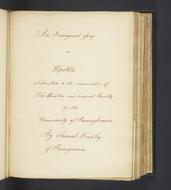 An Inaugural essay
on
Hepatitis
Submitted to the examination of
The Trustees and medical Faculty
of the
University of Pennsylvania
By Samuel
of Pennsylvania